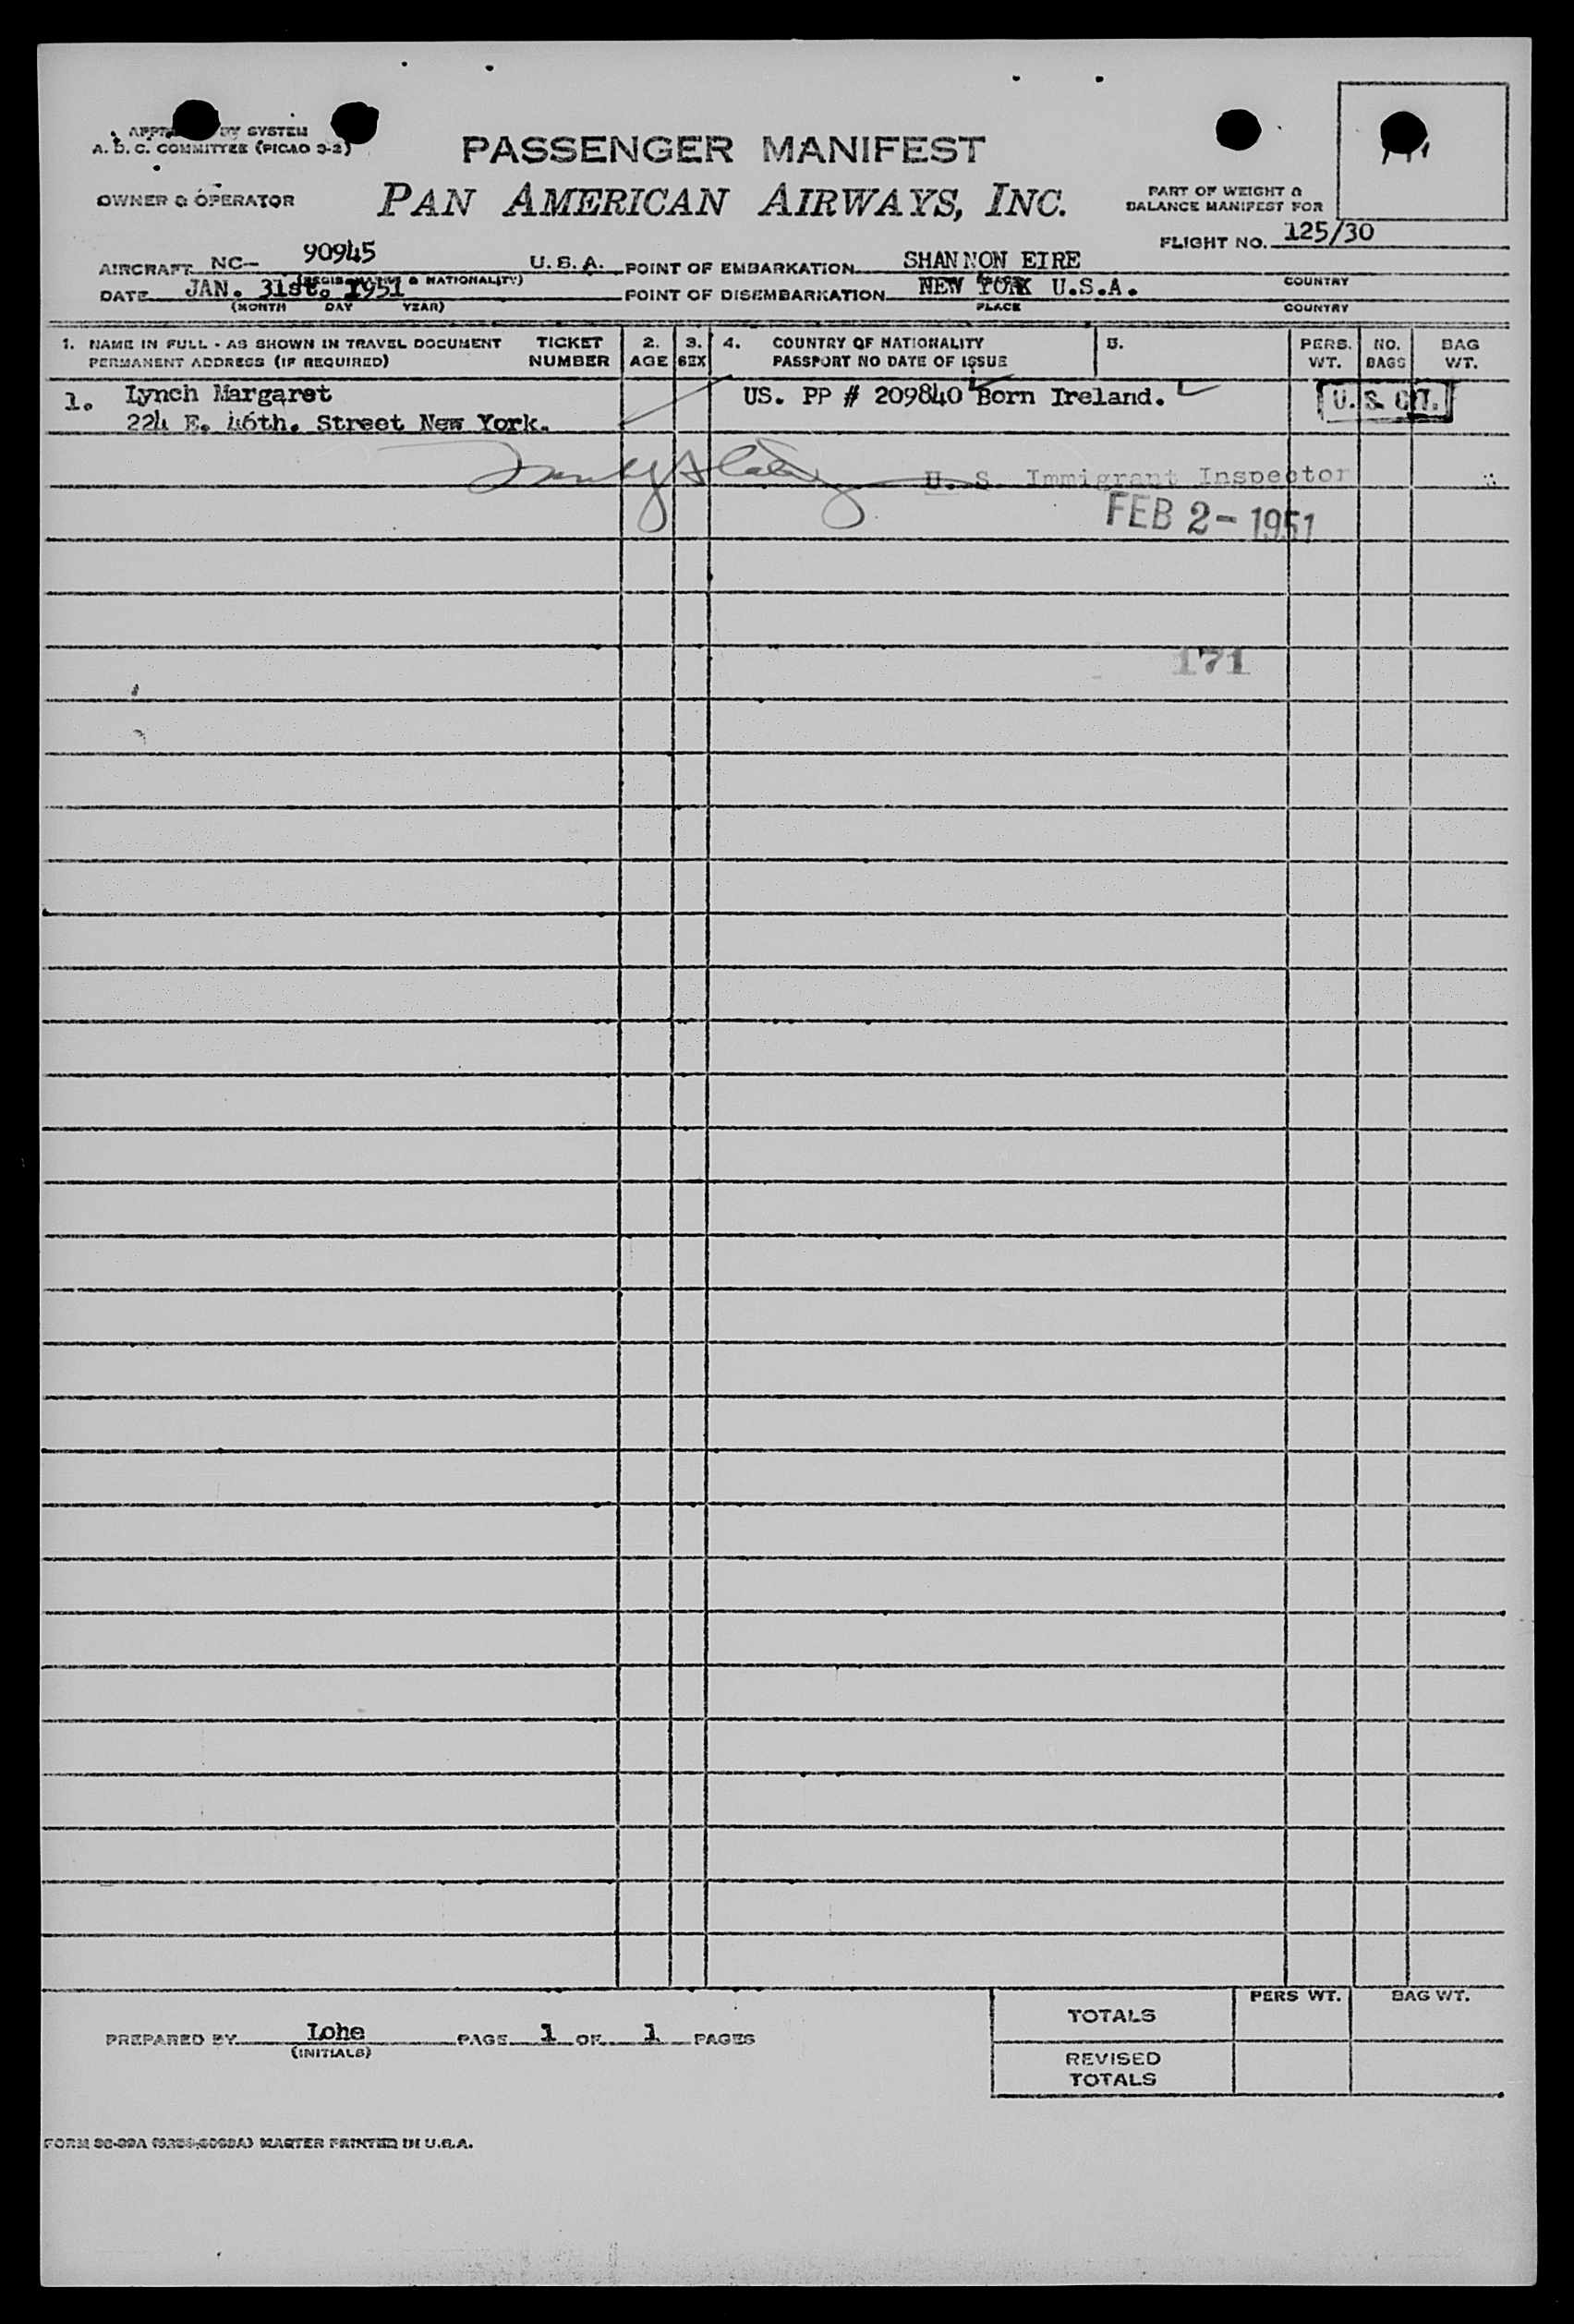 SYSTEM
A. D. C. COMMITTEE (PICAO 3-2)
OWNER & OPERATOR
PASSENGER MANIFEST
PAN AMERICAN AIRWAYS, INC.
PART OF WEIGHT &
BALANCE MANIFEST FOR
FLIGHT NO. 125/30
AIRCRAFT NC- 90945 U.S.A. POINT OF EMBARKATION SHANNON EIRE
& NATIONALITY) COUNTRY
DATE JAN. 31st. 1951 POINT OF DISEMBARKATION NEW YORK U.S.A.
(MONTH DAY YEAR) PLACE COUNTRY
1. NAME IN FULL - AS SHOWN IN TRAVEL DOCUMENT TICKET 2. 3. 4. COUNTRY OF NATIONALITY 5. PERS. NO. BAG
PERMANENT ADDRESS (IF REQUIRED) NUMBER AGE SEX PASSPORT NO DATE OF ISSUE WT. BAGS WT.
1. Lynch Margaret US. PP # 209840 Born Ireland. U. S. CIT.
224 E. 46th. Street New York.
U. S. Immigrant Inspector
FEB 2 - 1951
171
PERS WT. BAG WT.
TOTALS
PREPARED BY Lohe PAGE 1 OF 1 PAGES
(INITIALS)
REVISED
TOTALS
MASTER PRINTED IN U.S.A.